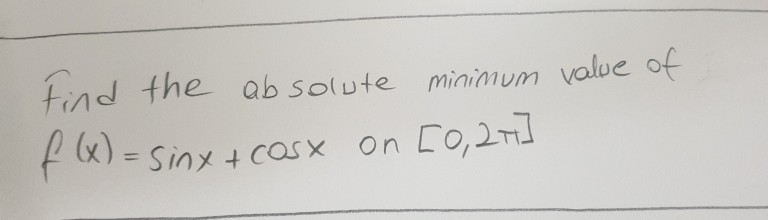 Find the absolute minimum value of
f(x) = sinx + cosx on [0,2π]